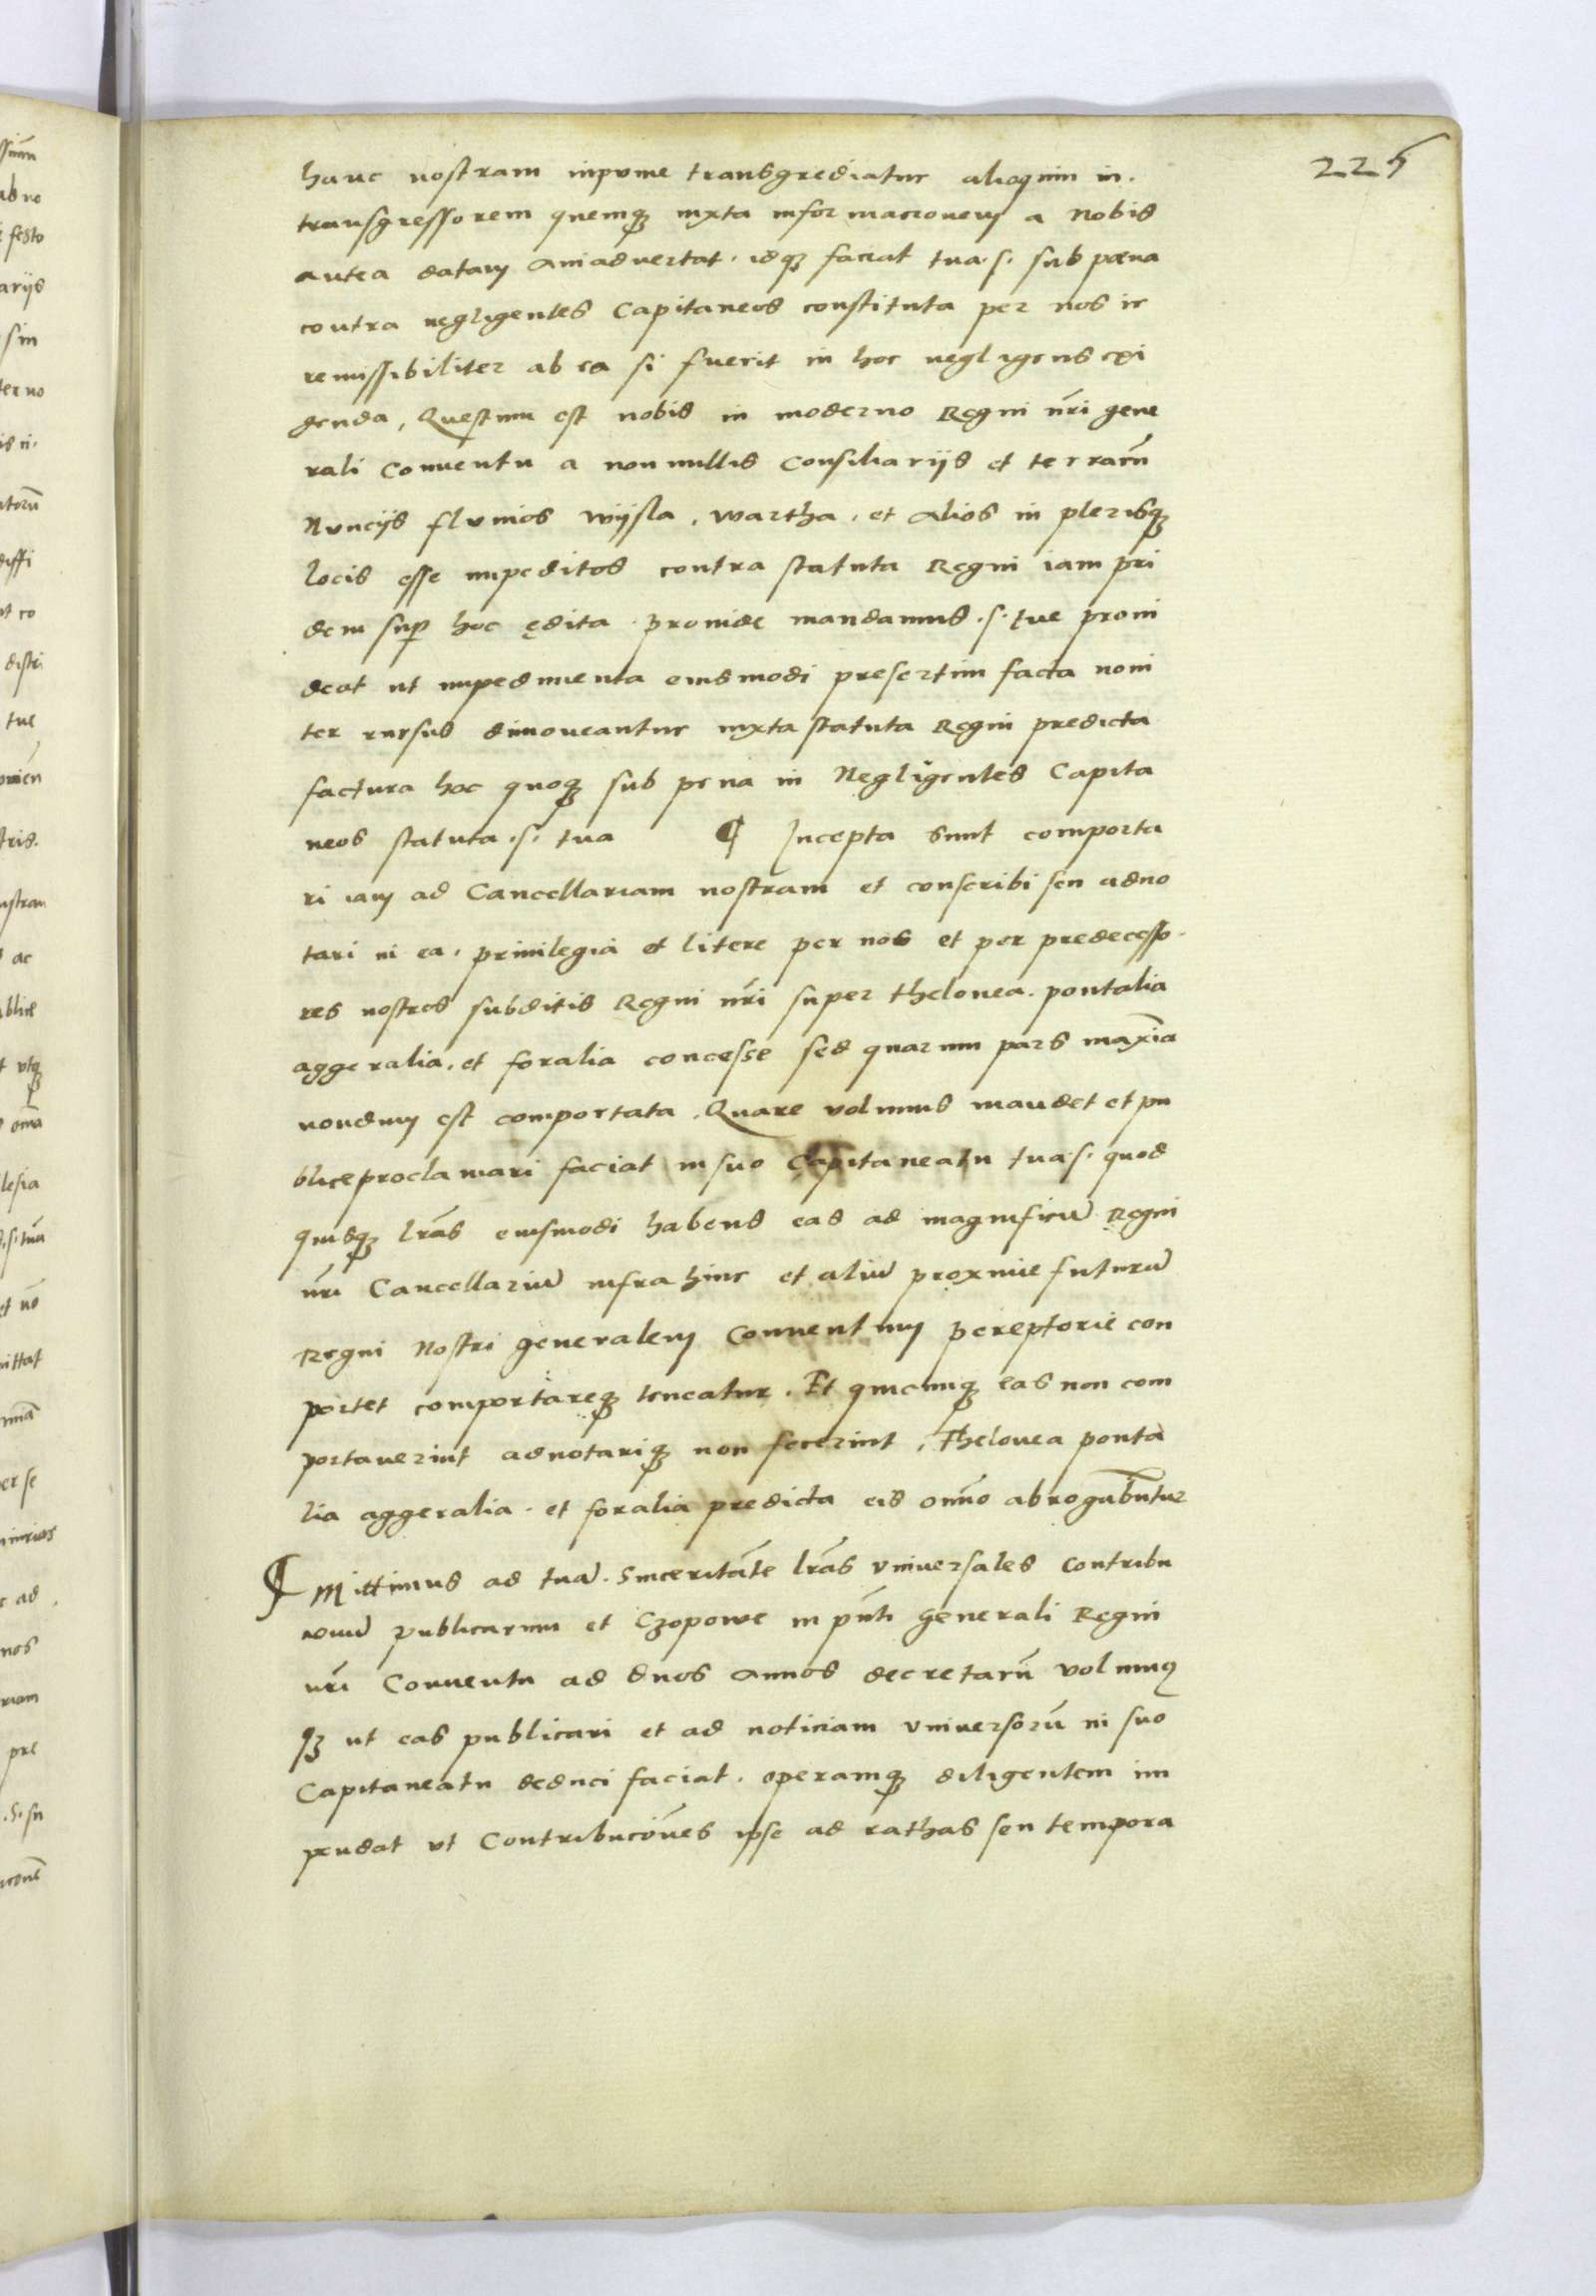 225
hanc nostram inpune transgrediatur alioquin in.
transgressorem quemq3 iuxta informacionem a nobis
antea datam aniaduertat. idq3 faciat tua .s. sub pæna
contra negligentes Capitaneos constituta per nos ir
remissibiliter ab ea si fuerit in hoc negligens exi
genda, Questum est nobis in moderno Regni nr̃i gene
rali Conuentu a nonnullis Consiliarijs et terrarũ
Nuncijs fluuios wijsla, wartha, et alios in plerisq3
locis esse impeditos contra statuta Regni iam pri
dem sup hoc ędita. prouide mandamus .s. tue proui
deat ut impedimenta eiusmodi presertim facta noui
ter rursus dimoueantur iuxta statuta Regni predicta
factura hoc quoq3 sub pena in Negligentes Capita
neos statuta .s. tua ¶ Incepta sunt comporta
ri iam ad Cancellariam nostram et conscribi seu adno
tari in ea, priuilegia et litere per nos et per predecesso-
res nostros subditis Regni nr̃i super thelonea. pontalia
aggeralia, et foralia concesse sed quarum pars maxĩa
nondum est comportata. Quare volumus mandet et pu
blice proclamari faciat in suo Capitaneatu tua .s. quod
quisq3 lr̃as eiusmodi habens eas ad magnificũ Regni
nr̃i Cancellariũ infra hinc et aliũ proxime futurũ
Regni Nostri generalem Conuentum pereptorie con
portet comportareq3 teneatur. Et quicumq3 eas non com
portauerint adnotariq3 non fecerint, Thelonea ponta
lia aggeralia. et foralia predicta eis omño abrogabuntur
¶ Mittimus ad tuã. Sinceritãte lr̃as vniuersales contribu
cionũ publicarum et Czopowe in pñti generali Regni
nr̃i Conuentu ad duos annos decretarũ volumus
q3 ut eas publicari et ad noticiam vniuersorũ in suo
Capitaneatu deduci faciat. operamq3 diligentem im
pendat vt Contribucõnes ipse ad rathas seu tempora